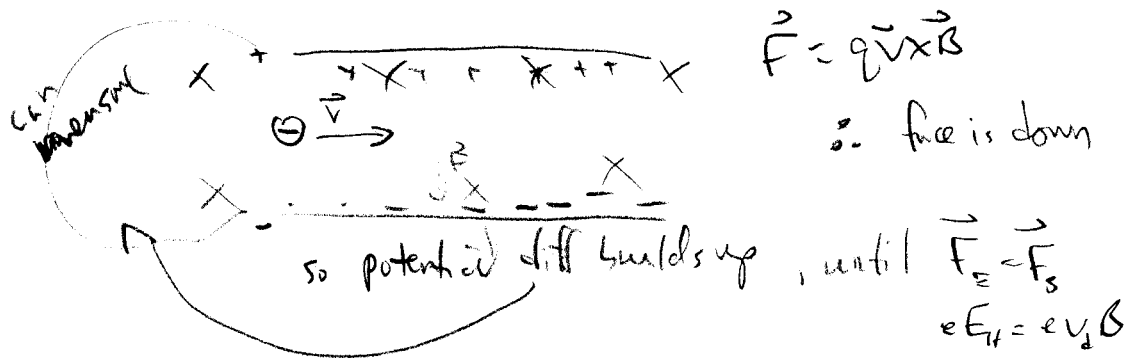 F⃗ = qv⃗ x B⃗
can
measure
v⃗
∴ force is down
so potential diff builds up, until F⃗_E = F⃗_B
eE_H = e v_d B